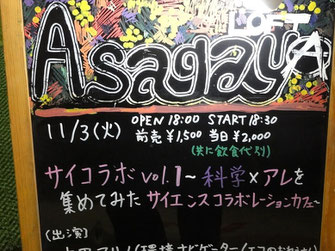 Asagaya
LOFT A
11/3(火) OPEN 18:00 START 18:30
前売 ¥1,500 当日 ¥2,000
(共に飲食代別)
サイコラボ vol.1〜科学×アレを
集めてみた サイエンスコラボレーションカフェ〜
(出演)